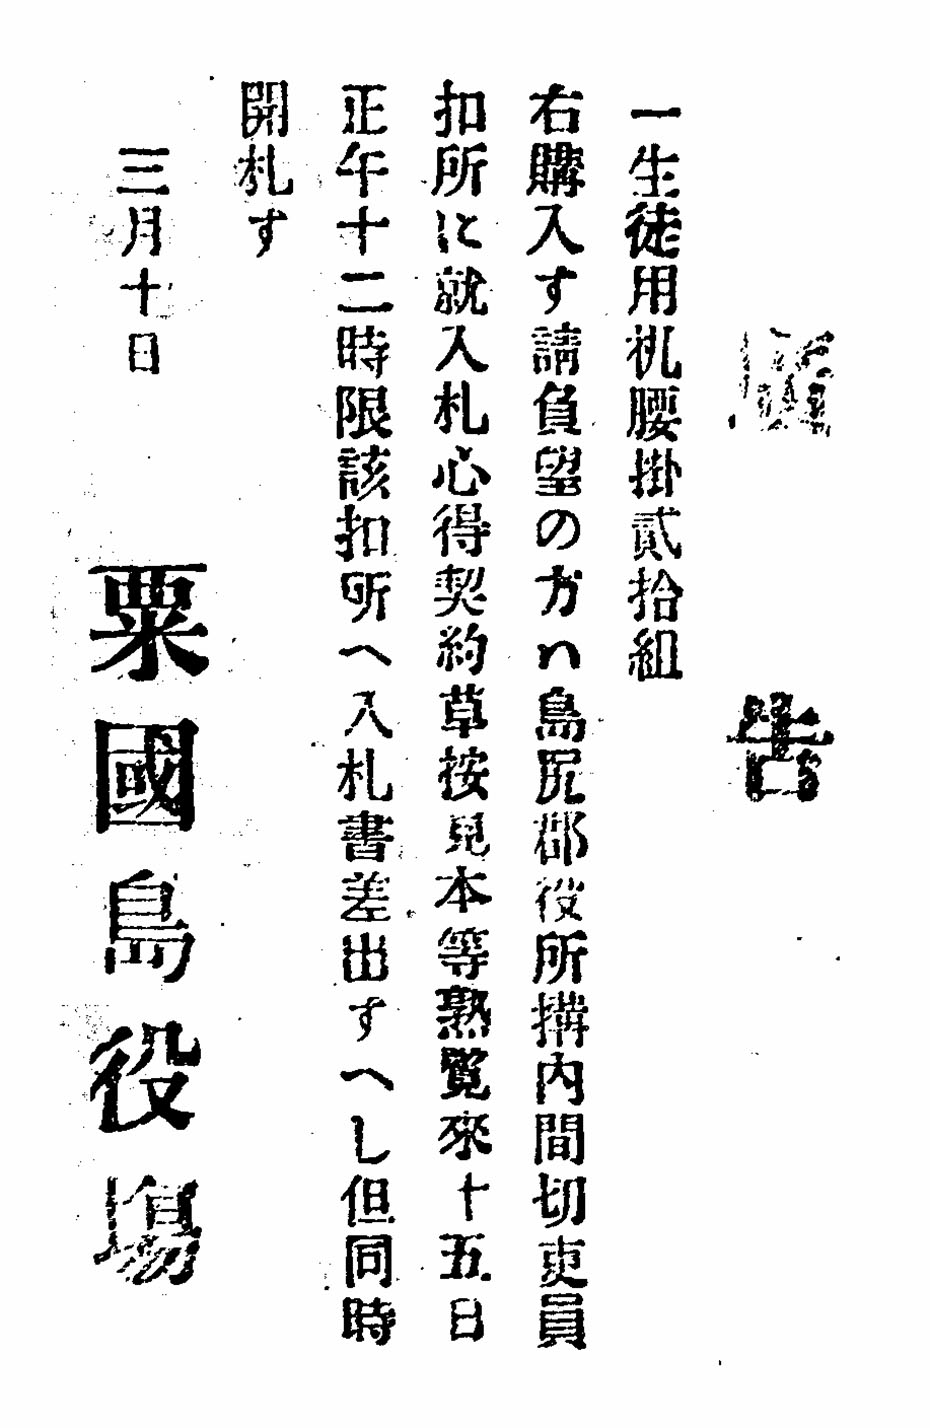 廣告
一生徒用机腰掛貳拾組
右購入す請負望の方ハ島尻郡役所搆内間切吏員
扣所に就入札心得契約草按見本等熟覽來十五日
正午十二時限該扣所へ入札書差出すへし但同時
開札す
三月十日
粟國島役塲